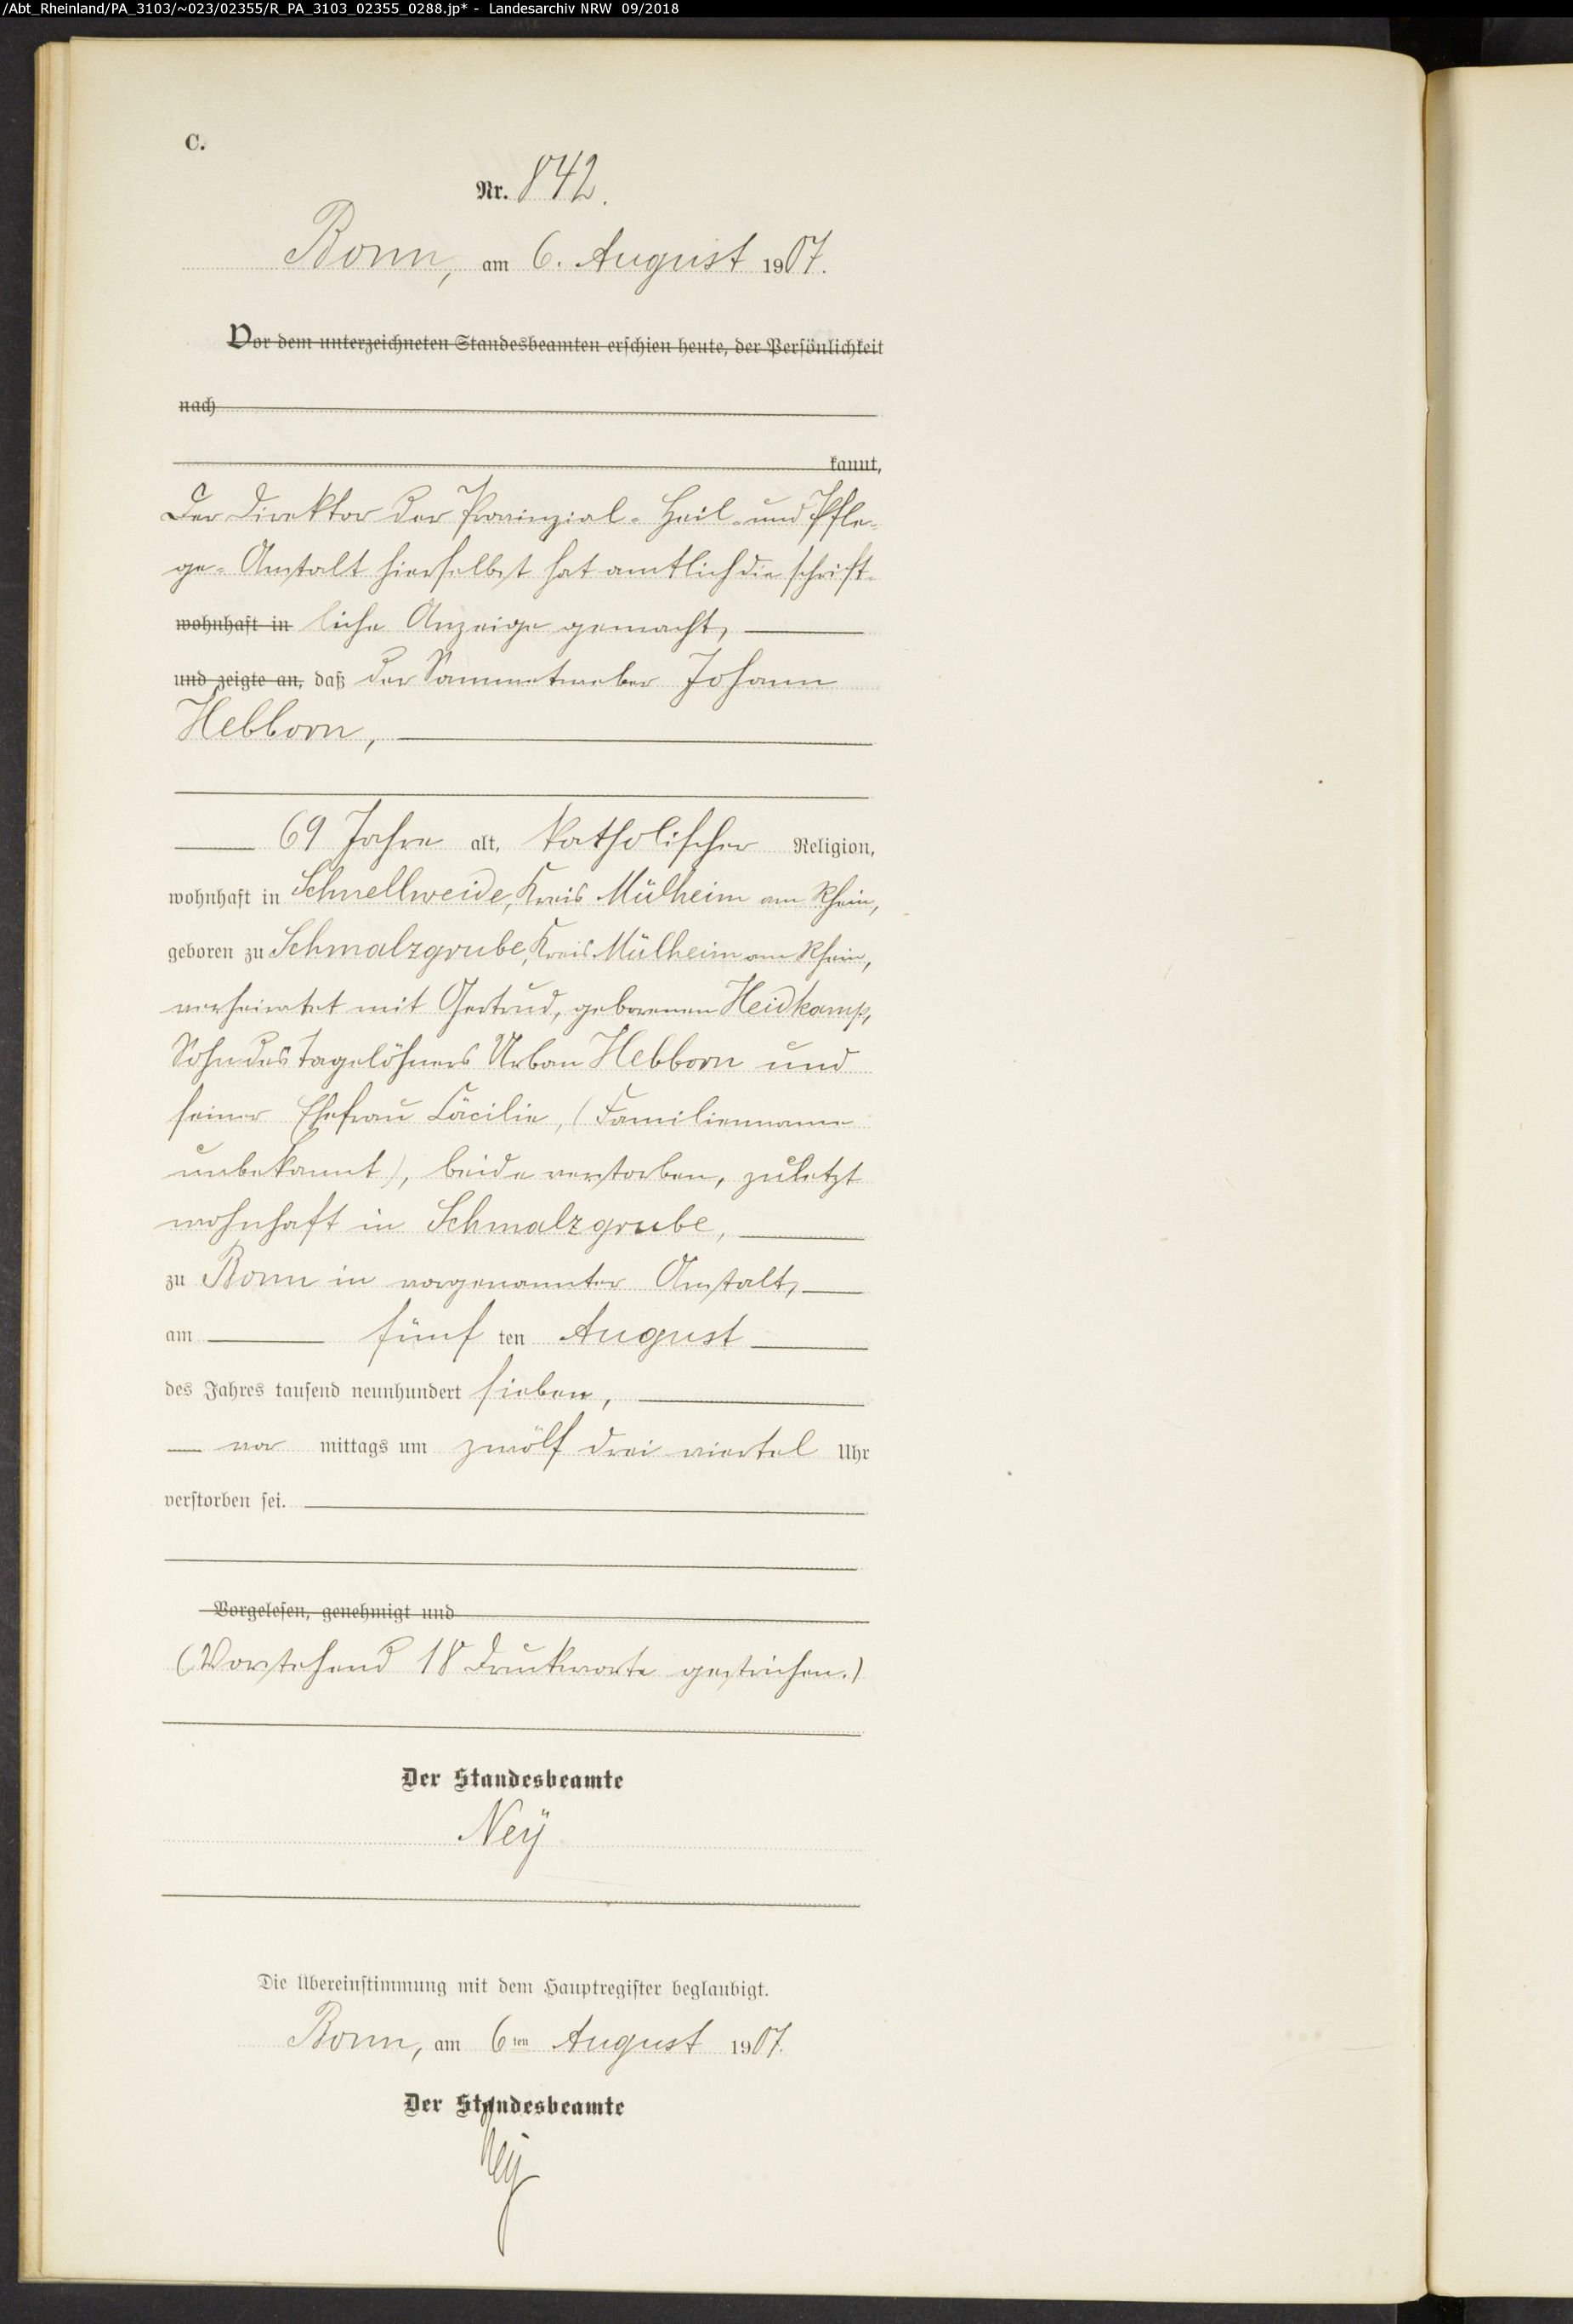 /Abt_Rheinland/PA_3103/~023/02355/R_PA_3103_02355_0288.jp* - Landesarchiv NRW 09/2018
C.
Nr. 842.
Bonn, am 6. August 1907.
Vor dem unterzeichneten Standesbeamten erschien heute, der Persönlichkeit
nach
kannt,
Der Direktor der Provinzial-Heil- und Pfle-
ge-Anstalt hierselbst hat amtlich die schrift-
wohnhaft in liche Anzeige gemacht,
und zeigte an, daß der Sammetweber Johann
Hebborn,
69 Jahre alt, katholischer Religion,
wohnhaft in Schnellweide, Kreis Mülheim am Rhein,
geboren zu Schmalzgrube, Kreis Mülheim am Rhein,
verheiratet mit Gertrud, geborenen Heidkamp,
Sohn des Tagelöhners Urban Hebborn und
seiner Ehefrau Cäcilie, (Familienname
unbekannt), beide verstorben, zuletzt
wohnhaft in Schmalzgrube,
zu Bonn in vorgenannter Anstalt,
am fünf ten August
des Jahres tausend neunhundert sieben,
vor mittags um zwölf drei viertel Uhr
verstorben sei.
Vorgelesen, genehmigt und
(Vorstehend 18 Druckworte gestrichen.)
Der Standesbeamte
Neÿ
Die Übereinstimmung mit dem Hauptregister beglaubigt.
Bonn, am 6ten August 1907.
Der Standesbeamte
Ney